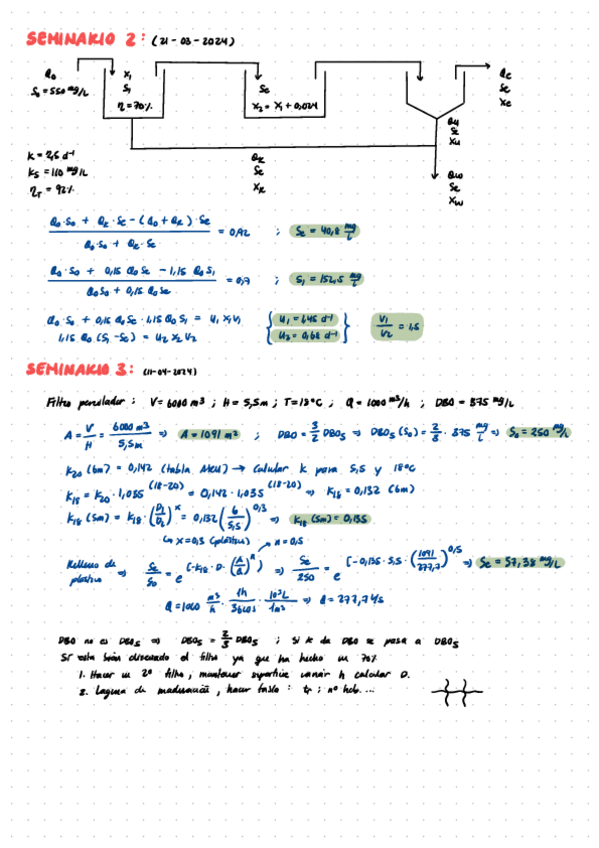 SEMINARIO 2: (21-03-2024)
Q₀
S₀ = 550 mg/L
X₁
S₁
η = 70%
Se
X₂ = X₁ + 0,024
Qe
Se
Xe
Qu
Se
Xu
K = 2,5 d⁻¹
Ks = 110 mg/L
ηT = 92%
QR
Se
XR
Qw
Se
Xw
(Q₀·S₀ + QR·Se - (Q₀+QR)·Se) / (Q₀·S₀ + QR·Se) = 0,92 ; Se = 40,8 mg/L
(Q₀·S₀ + 0,15 Q₀Se - 1,15 Q₀S₁) / (Q₀S₀ + 0,15 Q₀Se) = 0,7 ; S₁ = 152,5 mg/L
Q₀·S₀ + 0,15 Q₀Se - 1,15 Q₀S₁ = U₁ X₁V₁
1,15 Q₀ (S₁ - Se) = U₂ X₂ V₂
{ U₁ = 1,45 d⁻¹
U₂ = 0,68 d⁻¹ }
V₁/V₂ = 1,5
SEMINARIO 3: (11-04-2024)
Filtro percolador: V = 6000 m³ ; H = 5,5m ; T = 18°C ; Q = 1000 m³/h ; DBO = 375 mg/L
A = V/H = 6000 m³ / 5,5m => A = 1091 m² ; DBO = 3/2 DBO₅ => DBO₅ (S₀) = 2/3 · 375 mg/L => S₀ = 250 mg/L
K₂₀ (6m) = 0,142 (tabla) → Calcular K para 5,5 y 18°C
K₁₈ = K₂₀ · 1,035^(18-20) = 0,142 · 1,035^(18-20) => K₁₈ = 0,132 (6m)
K₁₈ (5m) = K₁₈ · (D₁/D₂)^x = 0,132 (6/5,5)^0,3 => K₁₈ (5m) = 0,135
↳ x = 0,3 (plástico) n = 0,5
Relleno de plástico => Se/S₀ = e^[-K₁₈ · D · (A/Q)^n] => Se/250 = e^[-0,135 · 5,5 · (1091/277,7)^0,5] => Se = 57,38 mg/L
Q = 1000 m³/h · 1h/3600s · 10³L/1m³ => Q = 277,7 L/s
DBO no es DBO₅ => DBO₅ = 2/3 DBO₅ ; Si K da DBO se pasa a DBO₅
Sí está bien diseñado el filtro ya que ha hecho un 70%
1. Hacer un 2º filtro, mantener superficie variar h calcular D.
2. Laguna de maduración, hacer tabla: tr ; nº hab....